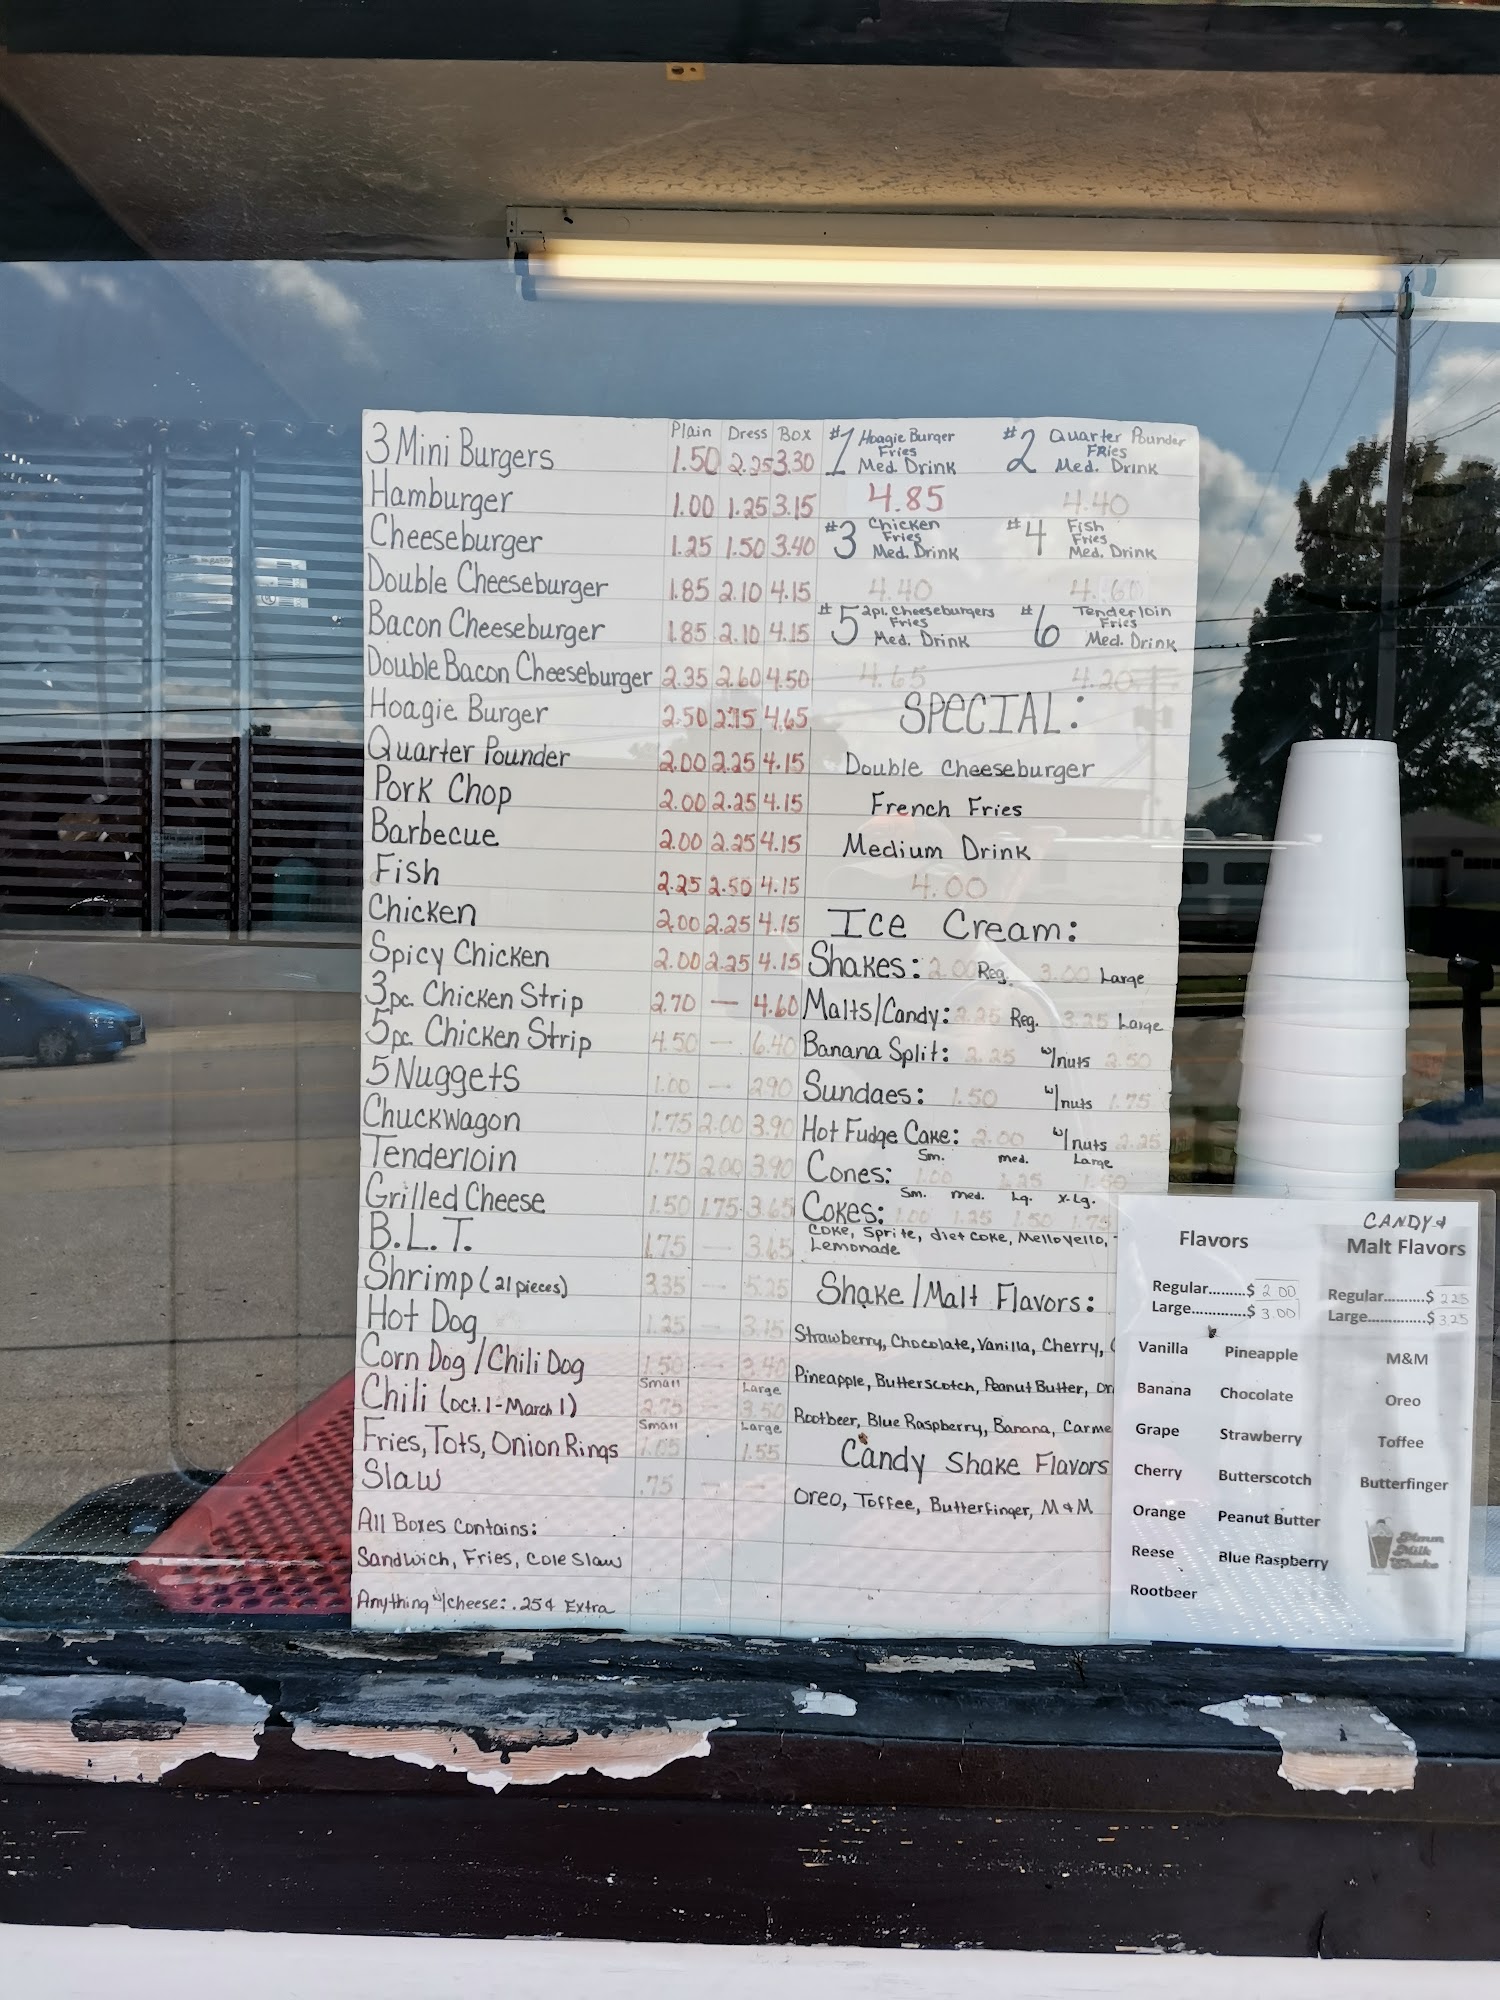 Plain Dress Box
3 Mini Burgers 1.50 2.25 3.30
Hamburger 1.00 1.25 3.15
Cheeseburger 1.25 1.50 3.40
Double Cheeseburger 1.85 2.10 4.15
Bacon Cheeseburger 1.85 2.10 4.15
Double Bacon Cheeseburger 2.35 2.60 4.50
Hoagie Burger 2.50 2.75 4.65
Quarter Pounder 2.00 2.25 4.15
Pork Chop 2.00 2.25 4.15
Barbecue 2.00 2.25 4.15
Fish 2.25 2.50 4.15
Chicken 2.00 2.25 4.15
Spicy Chicken 2.00 2.25 4.15
3pc. Chicken Strip 2.70 — 4.60
5pc. Chicken Strip 4.50 — 6.40
5 Nuggets 1.00 — 2.90
Chuckwagon 1.75 2.00 3.90
Tenderloin 1.75 2.00 3.90
Grilled Cheese 1.50 1.75 3.65
B.L.T. 1.75 — 3.65
Shrimp (21 pieces) 3.35 — 5.25
Hot Dog 1.25 — 3.15
Corn Dog / Chili Dog 1.50 — 3.40
Small Large
Chili (Oct. 1 - March 1) 2.75 — 3.50
Small Large
Fries, Tots, Onion Rings 1.55
Slaw .75 — —
All Boxes Contains:
Sandwich, Fries, Cole Slaw
Anything w/cheese: .25¢ Extra
#1 Hoagie Burger
Fries
Med. Drink
4.85
#2 Quarter Pounder
Fries
Med. Drink
4.40
#3 Chicken
Fries
Med. Drink
4.40
#4 Fish
Fries
Med. Drink
4.60
#5 2pl. Cheeseburgers
Fries
Med. Drink
4.65
#6 Tenderloin
Fries
Med. Drink
4.20
SPECIAL:
Double Cheeseburger
French Fries
Medium Drink
4.00
Ice Cream:
Shakes: 2.00 Reg. 3.00 Large
Malts/Candy: 2.25 Reg. 3.25 Large
Banana Split: 2.25 w/nuts 2.50
Sundaes: 1.50 w/nuts 1.75
Hot Fudge Cake: 2.00 w/nuts 2.25
Sm. med. Large
Cones: 1.00 1.25 1.50
Sm. med. Lg. X-Lg.
Cokes: 1.00 1.25 1.50 1.75
Coke, Sprite, diet coke, Mello yello,
Lemonade
Shake / Malt Flavors:
Strawberry, Chocolate, Vanilla, Cherry,
Pineapple, Butterscotch, Peanut Butter, Or
Rootbeer, Blue Raspberry, Banana, Carme
Candy Shake Flavors
Oreo, Toffee, Butterfinger, M & M
Flavors
Regular.........$ 2.00
Large.............$ 3.00
Vanilla Pineapple
Banana Chocolate
Grape Strawberry
Cherry Butterscotch
Orange Peanut Butter
Reese Blue Raspberry
Rootbeer
CANDY &
Malt Flavors
Regular..........$ 2.25
Large..............$ 3.25
M&M
Oreo
Toffee
Butterfinger
Mmm
Milk
Shake